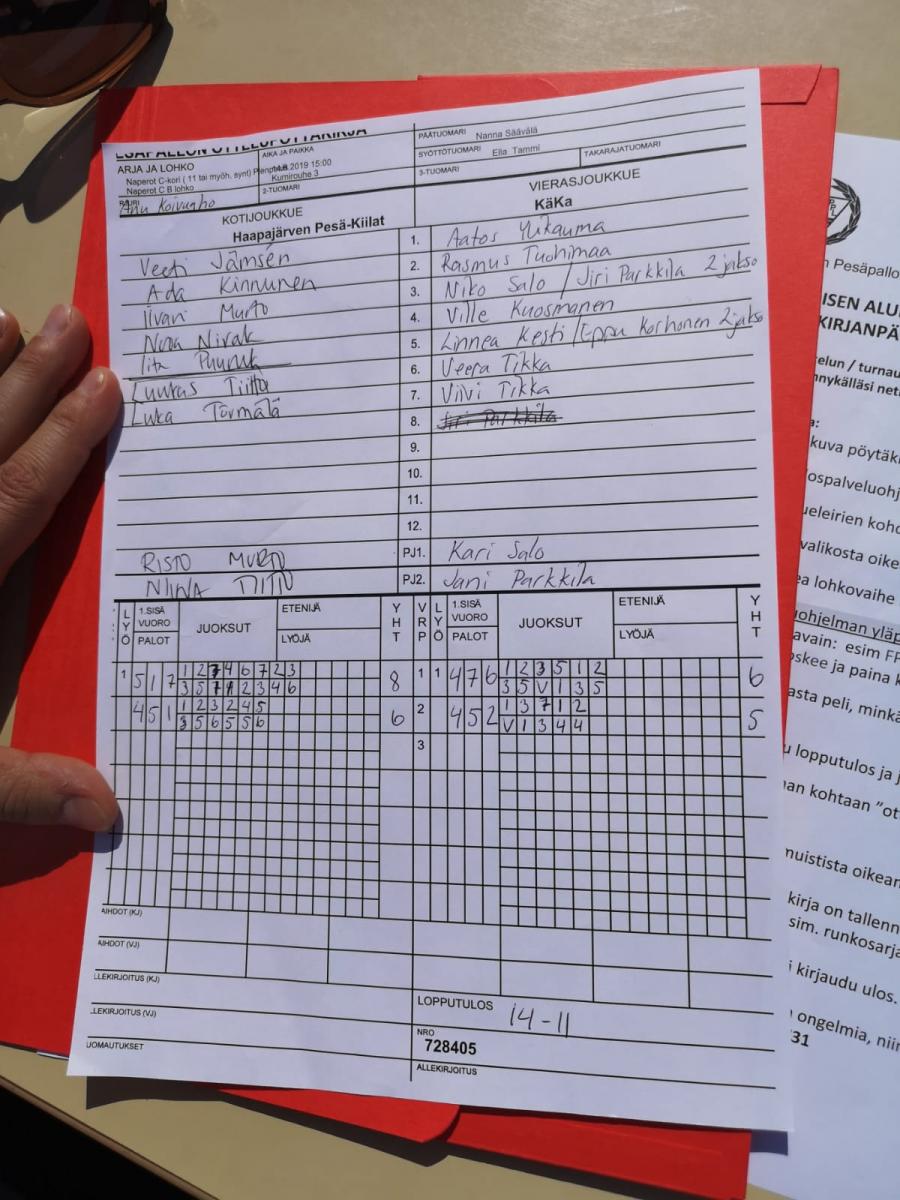 ESÄPALLON OTTELUPÖYTÄKIRJA
ARJA JA LOHKO
Naperot C-kori ( 11 tai myöh. synt) Pienpelit
Naperot C B lohko
AIKA JA PAIKKA
2019 15:00
Kumirouhe 3
PÄÄTUOMARI Nanna Säävälä
SYÖTTÖTUOMARI Ella Tammi
TAKARAJATUOMARI
2-TUOMARI
3-TUOMARI
Anu Koivuaho
KOTIJOUKKUE
VIERASJOUKKUE
Haapajärven Pesä-Kiilat
KäKa
Veeti Jämsén 1. Aatos Ylikauma
Ada Kinnunen 2. Rasmus Tuohimaa
Iivari Murto 3. Niko Salo / Jiri Parkkila 2 jakso
Noa Nivak 4. Ville Kuosmanen
Iita 5. Linnea Kesti / Eppu Korhonen 2 jakso
Luukas Tiitto 6. Veera Tikka
Luka Törmälä 7. Viivi Tikka
8. Jiri Parkkila
9.
10.
11.
12.
RISTO MURTO PJ1. Kari Salo
NIINA TIITTO PJ2. Jani Parkkila
LYÖ 1.SISÄ VUORO PALOT JUOKSUT ETENIJÄ LYÖJÄ YHT VRP LYÖ 1.SISÄ VUORO PALOT JUOKSUT ETENIJÄ LYÖJÄ YHT
1 5 1 7 1 2 7 4 6 7 2 3 8 1 1 4 7 6 1 2 3 5 1 2 6
3 5 7 1 2 3 4 6 3 5 V 1 3 5
4 5 1 1 2 3 2 4 5 6 2 4 5 2 1 3 7 1 2 5
3 5 6 5 5 6 V 1 3 4 4
3
AIHDOT (KJ)
AIHDOT (VJ)
LLEKIRJOITUS (KJ)
LLEKIRJOITUS (VJ)
UOMAUTUKSET
LOPPUTULOS 14-11
NRO
728405
ALLEKIRJOITUS
n Pesäpallo
ISEN ALU
KIRJANPÄ
elun / turnau
nnykälläsi net
a:
kuva pöytäki
ospalveluohj
ueleirien koho
valikosta oike
ea lohkovaihe
uohjelman yläp
avain: esim FP
oskee ja paina k
asta peli, minkä
u lopputulos ja j
nan kohtaan "ott
muistista oikean
kirja on tallenn
sim. runkosarja
i kirjaudu ulos.
ongelmia, niin
31